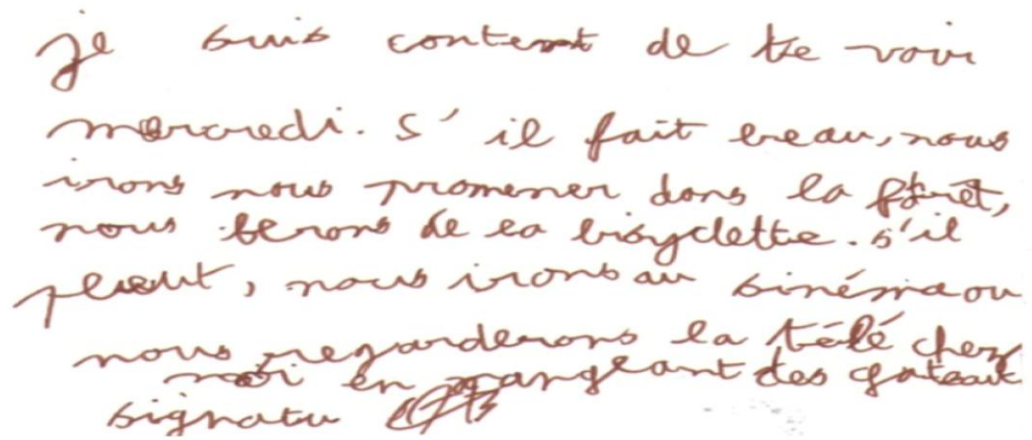 je suis content de te voir
mercredi. S'il fait beau, nous
irons nous promener dans la forêt,
nous ferons de la bicyclette. s'il
pleut, nous irons au sinéma ou
nous regarderons la télé chez
moi en mangeant des gateaux
signatu